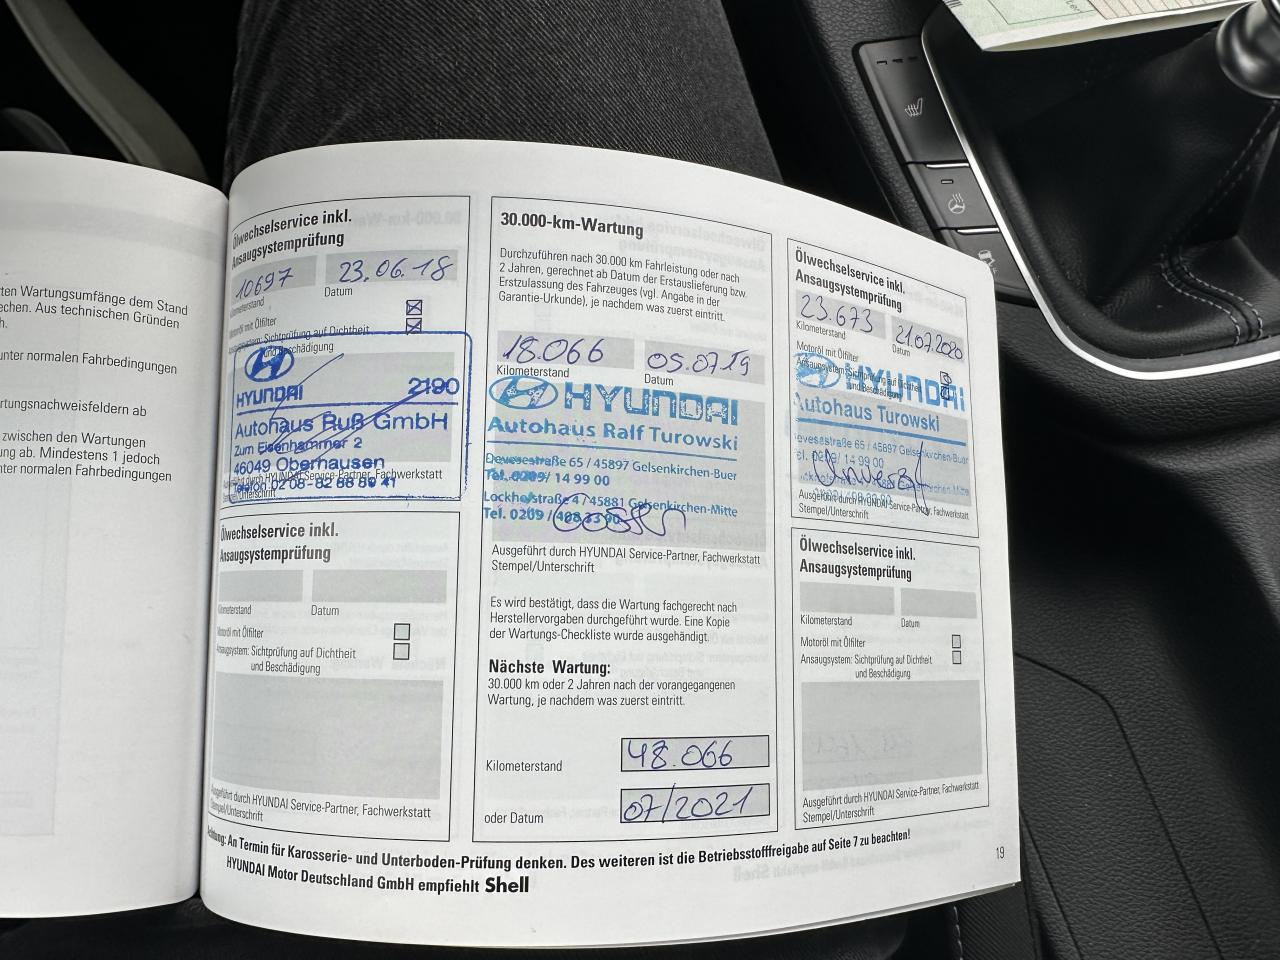 ten Wartungsumfänge dem Stand
echen. Aus technischen Gründen
h.
unter normalen Fahrbedingungen
rtungsnachweisfeldern ab
zwischen den Wartungen
ung ab. Mindestens 1 jedoch
nter normalen Fahrbedingungen
Ölwechselservice inkl.
Ansaugsystemprüfung
10697 23.06.18
Kilometerstand Datum
Motoröl mit Ölfilter
Sichtprüfung auf Dichtheit
und Beschädigung
HYUNDAI 2190
Autohaus Ruß GmbH
Zum Eisenhammer 2
46049 Oberhausen
Telefon 02 08 - 82 88 89 41
Ausgeführt durch HYUNDAI Service-Partner, Fachwerkstatt
Stempel/Unterschrift
Ölwechselservice inkl.
Ansaugsystemprüfung
Kilometerstand Datum
Motoröl mit Ölfilter
Ansaugsystem: Sichtprüfung auf Dichtheit
und Beschädigung
Ausgeführt durch HYUNDAI Service-Partner, Fachwerkstatt
Stempel/Unterschrift
30.000-km-Wartung
Durchzuführen nach 30.000 km Fahrleistung oder nach
2 Jahren, gerechnet ab Datum der Erstauslieferung bzw.
Erstzulassung des Fahrzeuges (vgl. Angabe in der
Garantie-Urkunde), je nachdem was zuerst eintritt.
18.066 05.07.19
Kilometerstand Datum
HYUNDAI
Autohaus Ralf Turowski
Devesestraße 65 / 45897 Gelsenkirchen-Buer
Tel. 0209/ 14 99 00
Lockhofstraße 4 / 45881 Gelsenkirchen-Mitte
Tel. 0209 /
Ausgeführt durch HYUNDAI Service-Partner, Fachwerkstatt
Stempel/Unterschrift
Es wird bestätigt, dass die Wartung fachgerecht nach
Herstellervorgaben durchgeführt wurde. Eine Kopie
der Wartungs-Checkliste wurde ausgehändigt.
Nächste Wartung:
30.000 km oder 2 Jahren nach der vorangegangenen
Wartung, je nachdem was zuerst eintritt.
Kilometerstand 48.066
oder Datum 07/2021
Ölwechselservice inkl.
Ansaugsystemprüfung
23.673 21.07.2020
Kilometerstand Datum
Motoröl mit Ölfilter
Ansaugsystem: Sichtprüfung auf Dichtheit
und Beschädigung
HYUNDAI
Autohaus Turowski
Devesestraße 65 / 45897 Gelsenkirchen-Buer
Tel. 0209/ 14 99 00
Ausgeführt durch HYUNDAI Service-Partner, Fachwerkstatt
Stempel/Unterschrift
Ölwechselservice inkl.
Ansaugsystemprüfung
Kilometerstand Datum
Motoröl mit Ölfilter
Ansaugsystem: Sichtprüfung auf Dichtheit
und Beschädigung
Ausgeführt durch HYUNDAI Service-Partner, Fachwerkstatt
Stempel/Unterschrift
Achtung: An Termin für Karosserie- und Unterboden-Prüfung denken. Des weiteren ist die Betriebsstofffreigabe auf Seite 7 zu beachten!
HYUNDAI Motor Deutschland GmbH empfiehlt Shell
19